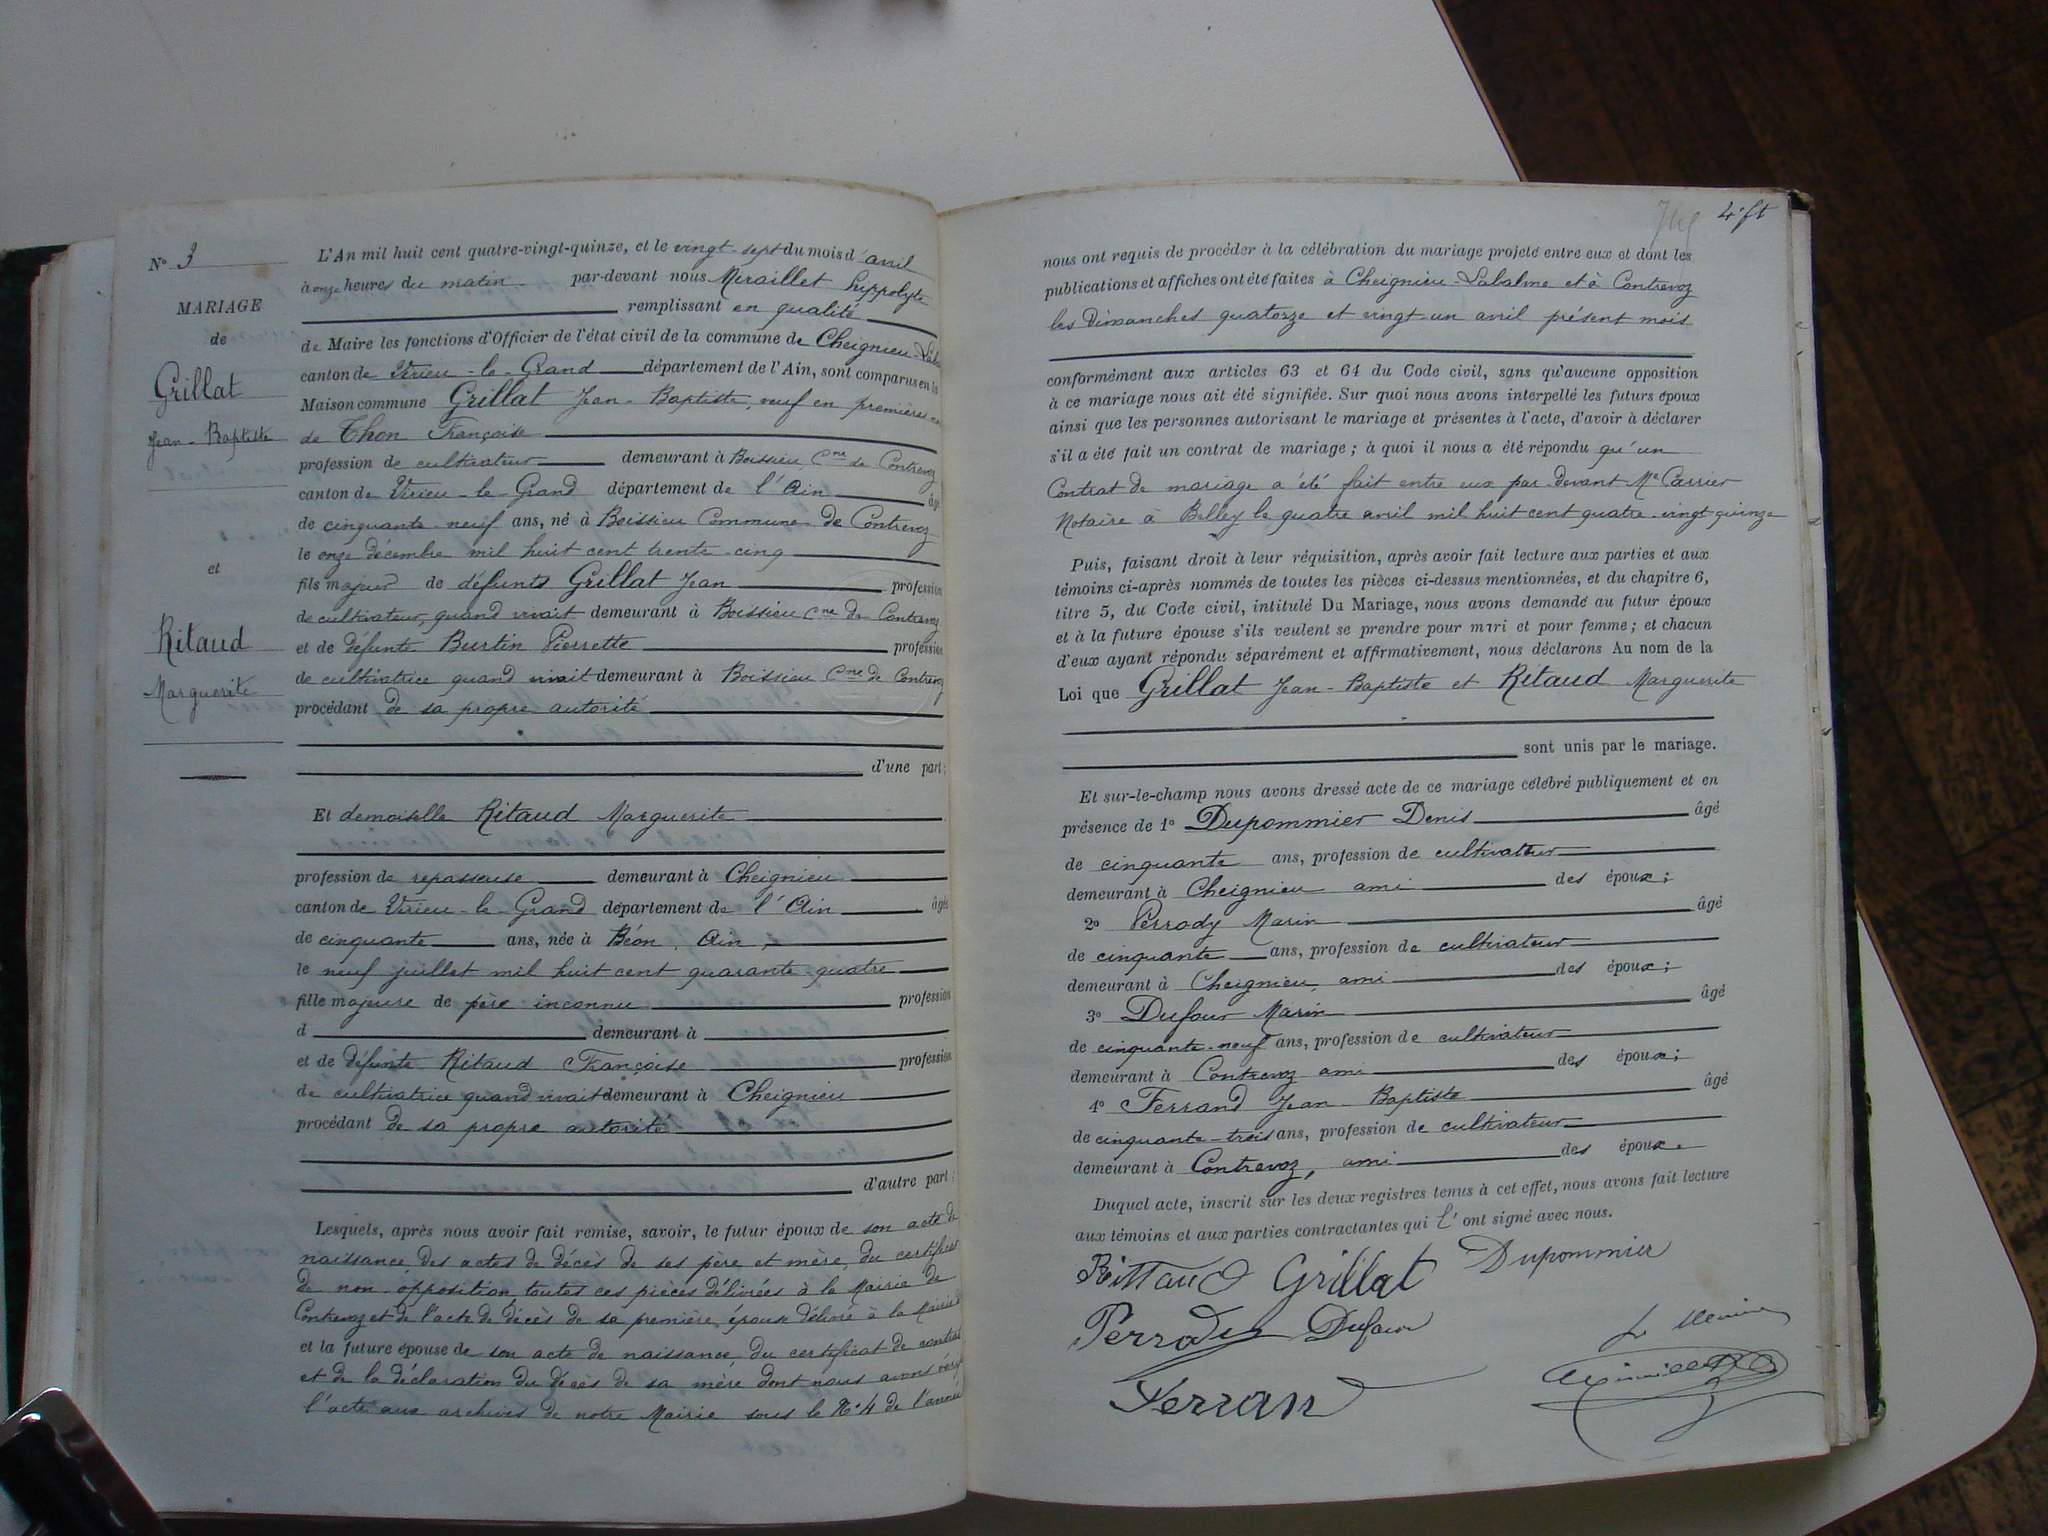 N° 3
MARIAGE
de
Grillat
Jean-Baptiste
et
Ritaud
Marguerite
L'An mil huit cent quatre-vingt-quinze, et le vingt-sept du mois d'avril
à onze heures du matin par-devant nous Miraillet hippolyte
remplissant en qualité
de Maire les fonctions d'Officier de l'état civil de la commune de Cheignieu-
canton de Virieu-le-Grand département de l'Ain, sont comparus en la
Maison commune Grillat Jean-Baptiste, veuf en premières
de Thon Françoise
profession de cultivateur demeurant à Boissieu Cne de Contrevoz
canton de Virieu-le-Grand département de l'Ain âgé
de cinquante-neuf ans, né à Boissieu Commune de Contrevoz
le onze décembre mil huit cent trente-cinq
fils majeur de défunts Grillat Jean profession
de cultivateur, quand vivait demeurant à Boissieu Cne de Contrevoz
et de défunte Burtin Pierrette profession
de cultivatrice quand vivait demeurant à Boissieu Cne de Contrevoz
procédant de sa propre autorité
d'une part;
Et demoiselle Ritaud Marguerite
profession de repasseuse demeurant à Cheignieu
canton de Virieu-le-Grand département de l'Ain âgée
de cinquante ans, née à Béon, Ain,
le neuf juillet mil huit cent quarante-quatre
fille majeure de père inconnu profession
d demeurant à
et de défunte Ritaud Françoise profession
de cultivatrice quand vivait demeurant à Cheignieu
procédant de sa propre autorité
d'autre part;
Lesquels, après nous avoir fait remise, savoir, le futur époux de son acte de
naissance, des actes de décès de ses père et mère, du certificat
de non-opposition, toutes ces pièces délivrées à la Mairie de
Contrevoz et de l'acte de décès de sa première épouse délivré à la Mairie
et la future épouse de son acte de naissance, du certificat de contrat
et de la déclaration du décès de sa mère dont nous avons
l'acte aux archives de notre Mairie sous le N° 4 de l'année
4e ft
nous ont requis de procéder à la célébration du mariage projeté entre eux et dont les
publications et affiches ont été faites à Cheignieu-Labalme et à Contrevoz
les Dimanches quatorze et vingt-un avril présent mois
conformément aux articles 63 et 64 du Code civil, sans qu'aucune opposition
à ce mariage nous ait été signifiée. Sur quoi nous avons interpellé les futurs époux
ainsi que les personnes autorisant le mariage et présentes à l'acte, d'avoir à déclarer
s'il a été fait un contrat de mariage; à quoi il nous a été répondu qu'un
Contrat de mariage a été fait entre eux par devant Me Carrier
Notaire à Belley le quatre avril mil huit cent quatre-vingt quinze
Puis, faisant droit à leur réquisition, après avoir fait lecture aux parties et aux
témoins ci-après nommés de toutes les pièces ci-dessus mentionnées, et du chapitre 6,
titre 5, du Code civil, intitulé Du Mariage, nous avons demandé au futur époux
et à la future épouse s'ils veulent se prendre pour mari et pour femme; et chacun
d'eux ayant répondu séparément et affirmativement, nous déclarons Au nom de la
Loi que Grillat Jean-Baptiste et Ritaud Marguerite
sont unis par le mariage.
Et sur-le-champ nous avons dressé acte de ce mariage célébré publiquement et en
présence de 1° Dupommier Denis âgé
de cinquante ans, profession de cultivateur
demeurant à Cheignieu ami des époux;
2° Perrody Marin âgé
de cinquante ans, profession de cultivateur
demeurant à Cheignieu, ami des époux;
3° Dufour Marin âgé
de cinquante-neuf ans, profession de cultivateur
demeurant à Contrevoz ami des époux;
4° Ferrand Jean-Baptiste âgé
de cinquante-trois ans, profession de cultivateur
demeurant à Contrevoz, ami des époux.
Duquel acte, inscrit sur les deux registres tenus à cet effet, nous avons fait lecture
aux témoins et aux parties contractantes qui l'ont signé avec nous.
Rittaud Grillat Dupommier
Perrody Dufour
Ferran